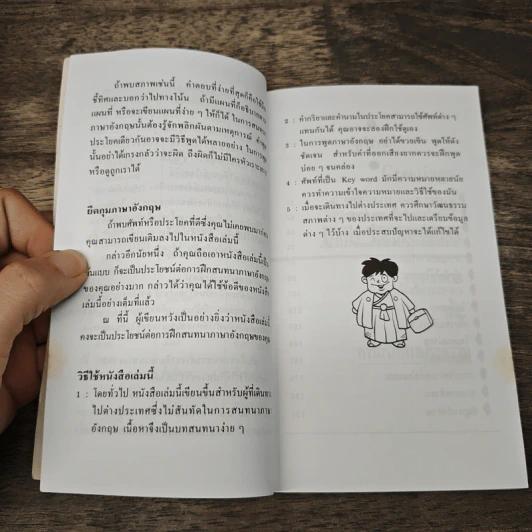 ถ้าพบสภาพเช่นนี้ คำตอบที่ง่ายที่สุดก็คือใช้นิ้ว
ชี้ทิศและบอกว่าไปทางโน้น ถ้ามีแผนที่ก็อธิบายตาม
แผนที่ หรือจะเขียนแผนที่ง่าย ๆ ให้ก็ได้ ในการสนทนา
ภาษาอังกฤษนั้นต้องรู้จักพลิกผันตามเหตุการณ์ คำพูด
ประโยคเดียวกันอาจจะมีวิธีพูดได้หลายอย่าง ในการพูด
นั้นอย่าได้เกรงกลัวว่าจะผิด ถึงผิดก็ไม่มีใครหัวเราะเยาะ
หรือดูถูกเราได้
ยึดกุมภาษาอังกฤษ
ถ้าพบศัพท์หรือประโยคที่ดีซึ่งคุณไม่เคยพบมาก่อน
คุณสามารถเขียนเติมลงไปในหนังสือเล่มนี้
กล่าวอีกนัยหนึ่ง ถ้าคุณถือเอาหนังสือเล่มนี้เป็น
ต้นแบบ ก็จะเป็นประโยชน์ต่อการฝึกสนทนาภาษาอังกฤษ
ของคุณอย่างมาก กล่าวได้ว่าคุณได้ใช้ข้อดีของหนังสือ
เล่มนี้อย่างเต็มที่แล้ว
ณ ที่นี้ ผู้เขียนหวังเป็นอย่างยิ่งว่าหนังสือเล่มนี้
คงจะเป็นประโยชน์ต่อการฝึกสนทนาภาษาอังกฤษของคุณ
วิธีใช้หนังสือเล่มนี้
1 : โดยทั่วไป หนังสือเล่มนี้เขียนขึ้นสำหรับผู้ที่เดินทาง
ไปต่างประเทศซึ่งไม่สันทัดในการสนทนาภาษา
อังกฤษ เนื้อหาจึงเป็นบทสนทนาง่าย ๆ
2 : คำกริยาและคำนามในประโยคสามารถใช้ศัพท์ต่าง ๆ
แทนกันได้ คุณอาจจะลองฝึกใช้ดูเอง
3 : ในการพูดภาษาอังกฤษ อย่าได้ขวยเขิน พูดให้ดัง
ชัดเจน สำหรับคำที่ออกเสียงยากควรจะฝึกพูด
บ่อย ๆ จนคล่อง
4 : ศัพท์ที่เป็น Key word มักมีความหมายหลายนัย
ควรทำความเข้าใจความหมายและวิธีใช้ของมัน
5 : เมื่อจะเดินทางไปต่างประเทศ ควรศึกษาวัฒนธรรม
สภาพต่าง ๆ ของประเทศที่จะไปและเตรียมข้อมูล
ต่าง ๆ ไว้บ้าง เมื่อประสบปัญหาจะได้แก้ไขได้